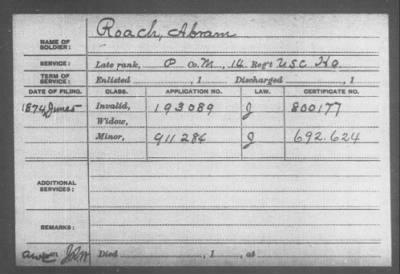 NAME OF SOLDIER: Roach, Abram
SERVICE: Late rank, P Co. M, 14 Reg't U S C H A
TERM OF SERVICE: Enlisted , 1 Discharged , 1
DATE OF FILING. CLASS. APPLICATION NO. LAW. CERTIFICATE NO.
1874 June 5 Invalid, 193089 J 800177
Widow,
Minor, 911286 J 692.624
ADDITIONAL SERVICES:
REMARKS:
Died , 1 , at